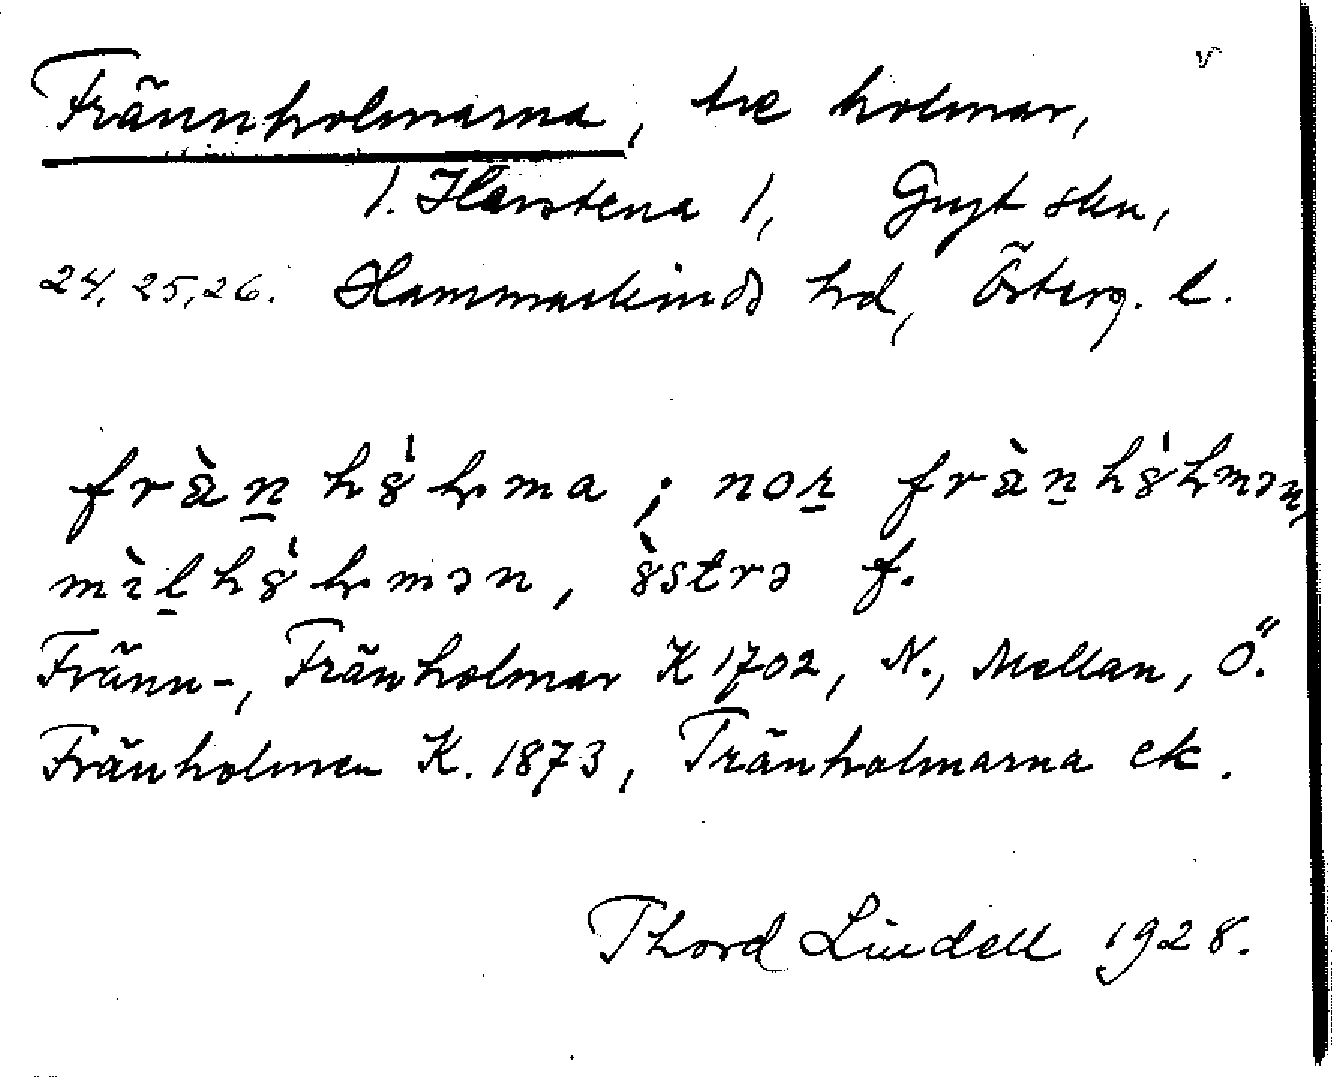 Frännholmarna, tre holmar,
1. Harstena 1, Gryt skn,
24, 25, 26. Hammarkinds hd, Österg. l.
fràn hȣ̀ma ; nor frànhȣ̀mən,
mìlhȣ̀mən, ȣ̀strə f.
Fränn-, Fränholmar K 1702, N., Mellan, Ö.
Fränholmen K. 1873, Tränholmarna ek.
Thord Lindell 1928.